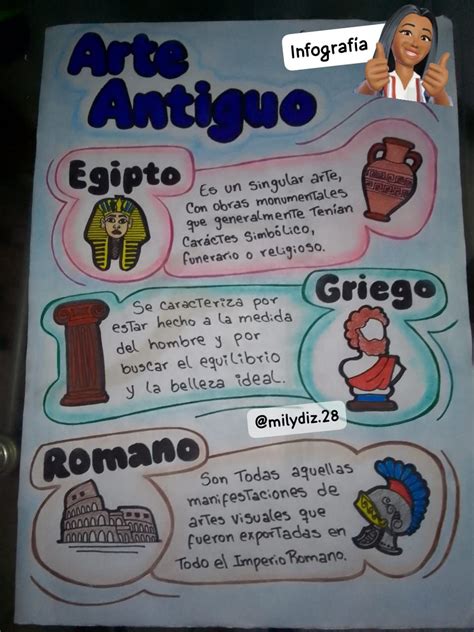 Infografía
Arte
Antiguo
Egipto
Es un singular arte,
Con obras monumentales
que generalmente Tenían
Caráctes Simbólico,
funerario o religioso.
Griego
Se caracteriza por
estar hecho a la medida
del hombre y por
buscar el equilibrio
y la belleza ideal.
@milydiz.28
Romano
Son Todas aquellas
manifestaciones de
artes visuales que
fueron exportadas en
Todo el Imperio Romano.